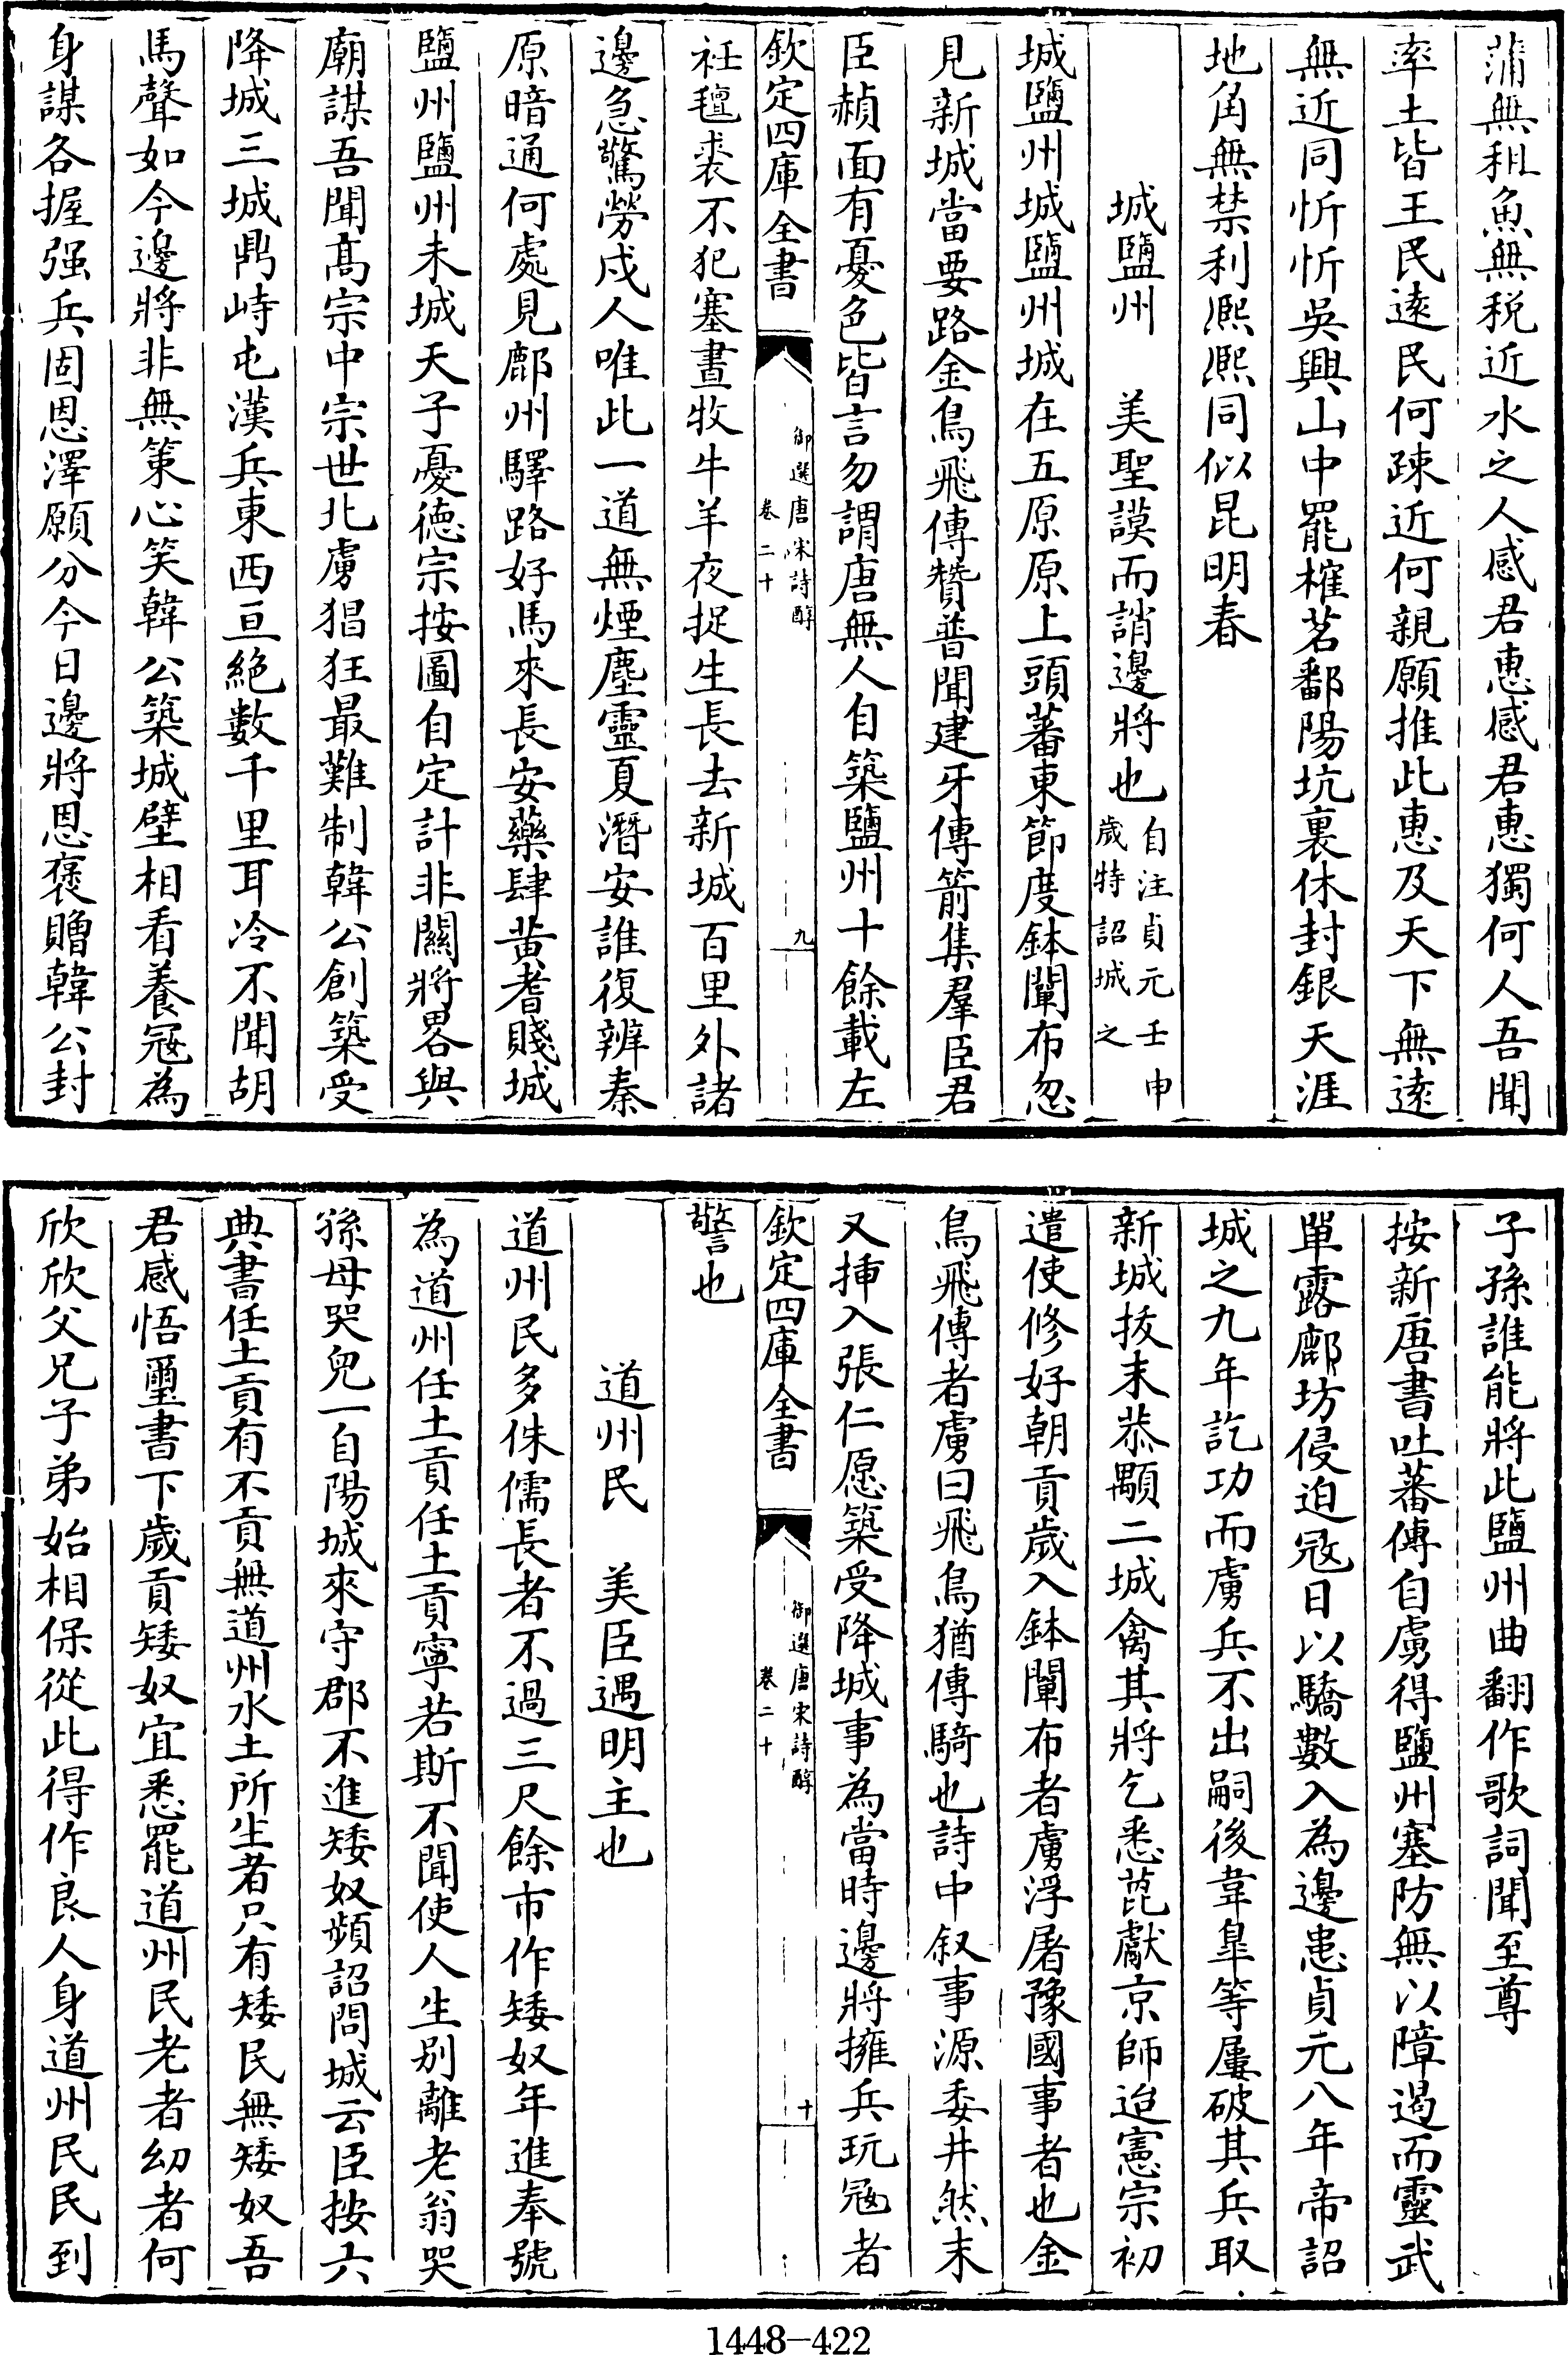 蒲無租魚無税近水之人感君惠感君惠獨何人吾聞
率土皆王民逺民何疎近何親願推此惠及天下無逺
無近同忻忻吳興山中罷榷茗鄱陽坑裏休封銀天涯
地角無禁利熈熈同似昆明春
城鹽州　美聖謨而誚邊將也自注貞元壬申
歲特詔城之
城鹽州城鹽州城在五原原上頭蕃東節度鉢闡布忽
見新城當要路金鳥飛傳贊普聞建牙傳箭集羣臣君
臣赬面有憂色皆言勿謂唐無人自築鹽州十餘載左
欽定四庫全書
御選唐宋詩醇
卷二十
九
衽氊裘不犯塞晝牧牛羊夜捉生長去新城百里外諸
邊急驚勞戍人唯此一道無煙塵靈夏潛安誰復辨秦
原暗通何處見鄜州驛路好馬來長安藥肆黄耆賤城
鹽州鹽州未城天子憂徳宗按圖自定計非關將畧與
廟謀吾聞髙宗中宗世北虜猖狂最難制韓公創築受
降城三城鼎峙屯漢兵東西亘絶數千里耳冷不聞胡
馬聲如今邊將非無策心笑韓公築城壁相看養冦為
身謀各握强兵固恩澤願分今日邊將恩褒贈韓公封
子孫誰能將此鹽州曲翻作歌詞聞至尊
按新唐書吐蕃傳自虜得鹽州塞防無以障遏而靈武
單露鄜坊侵迫冦日以驕數入為邊患貞元八年帝詔
城之九年訖功而虜兵不出嗣後韋臯等屢破其兵取
新城拔末恭顒二城禽其將乞悉莀獻京師迨憲宗初
遣使修好朝貢歲入鉢闡布者虜浮屠豫國事者也金
鳥飛傳者虜曰飛鳥猶傳騎也詩中叙事源委井然末
又挿入張仁愿築受降城事為當時邊將擁兵玩冦者
欽定四庫全書
御選唐宋詩醇
卷二十
十
警也
道州民　美臣遇明主也
道州民多侏儒長者不過三尺餘市作矮奴年進奉號
為道州任土貢任土貢寧若斯不聞使人生别離老翁哭
孫母哭兒一自陽城來守郡不進矮奴頻詔問城云臣按六
典書任土貢有不貢無道州水土所生者只有矮民無矮奴吾
君感悟璽書下歲貢矮奴宜悉罷道州民老者幼者何
欣欣父兄子弟始相保從此得作良人身道州民民到
1448-422